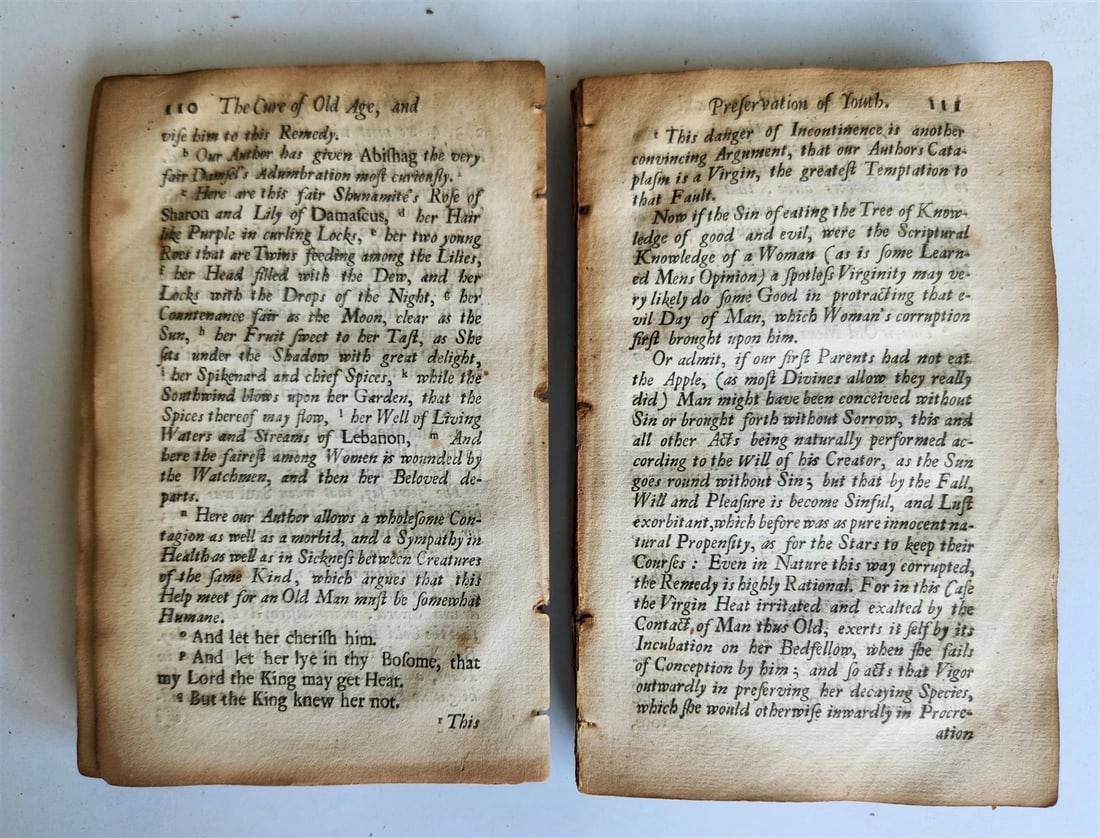 110 The Cure of Old Age, and
viſe him to this Remedy.
b Our Author has given Abiſhag the very
fair Damſel's Adumbration moſt curiouſly.
c Here are this fair Shunamite's Roſe of
Sharon and Lily of Damaſcus, d her Hair
like Purple in curling Locks, e her two young
Roes that are Twins feeding among the Lilies,
f her Head filled with the Dew, and her
Locks with the Drops of the Night, g her
Countenance fair as the Moon, clear as the
Sun, h her Fruit ſweet to her Taſt, as She
ſits under the Shadow with great delight,
i her Spikenard and chief Spices, k while the
Southwind blows upon her Garden, that the
Spices thereof may flow, l her Well of Living
Waters and Streams of Lebanon, m And
here the faireſt among Women is wounded by
the Watchmen, and then her Beloved de-
parts.
n Here our Author allows a wholeſome Con-
tagion as well as a morbid, and a Sympathy in
Health as well as in Sickneſs between Creatures
of the ſame Kind, which argues that this
Help meet for an Old Man muſt be ſomewhat
Humane.
o And let her cheriſh him.
p And let her lye in thy Boſome, that
my Lord the King may get Heat.
q But the King knew her not.
r This
Preſervation of Youth. 111
r This danger of Incontinence is another
convincing Argument, that our Authors Cata-
plaſm is a Virgin, the greateſt Temptation to
that Fault.
Now if the Sin of eating the Tree of Know-
ledge of good and evil, were the Scriptural
Knowledge of a Woman (as is ſome Learn-
ed Mens Opinion) a ſpotleſs Virginity may ve-
ry likely do ſome Good in protracting that e-
vil Day of Man, which Woman's corruption
firſt brought upon him.
Or admit, if our firſt Parents had not eat
the Apple, (as moſt Divines allow they really
did) Man might have been conceived without
Sin or brought forth without Sorrow, this and
all other Acts being naturally performed ac-
cording to the Will of his Creator, as the Sun
goes round without Sin; but that by the Fall,
Will and Pleaſure is become Sinful, and Luſt
exorbitant, which before was as pure innocent na-
tural Propenſity, as for the Stars to keep their
Courſes : Even in Nature this way corrupted,
the Remedy is highly Rational. For in this Caſe
the Virgin Heat irritated and exalted by the
Contact of Man thus Old, exerts it ſelf by its
Incubation on her Bedfellow, when ſhe fails
of Conception by him ; and ſo acts that Vigor
outwardly in preſerving her decaying Species,
which ſhe would otherwiſe inwardly in Procre-
ation